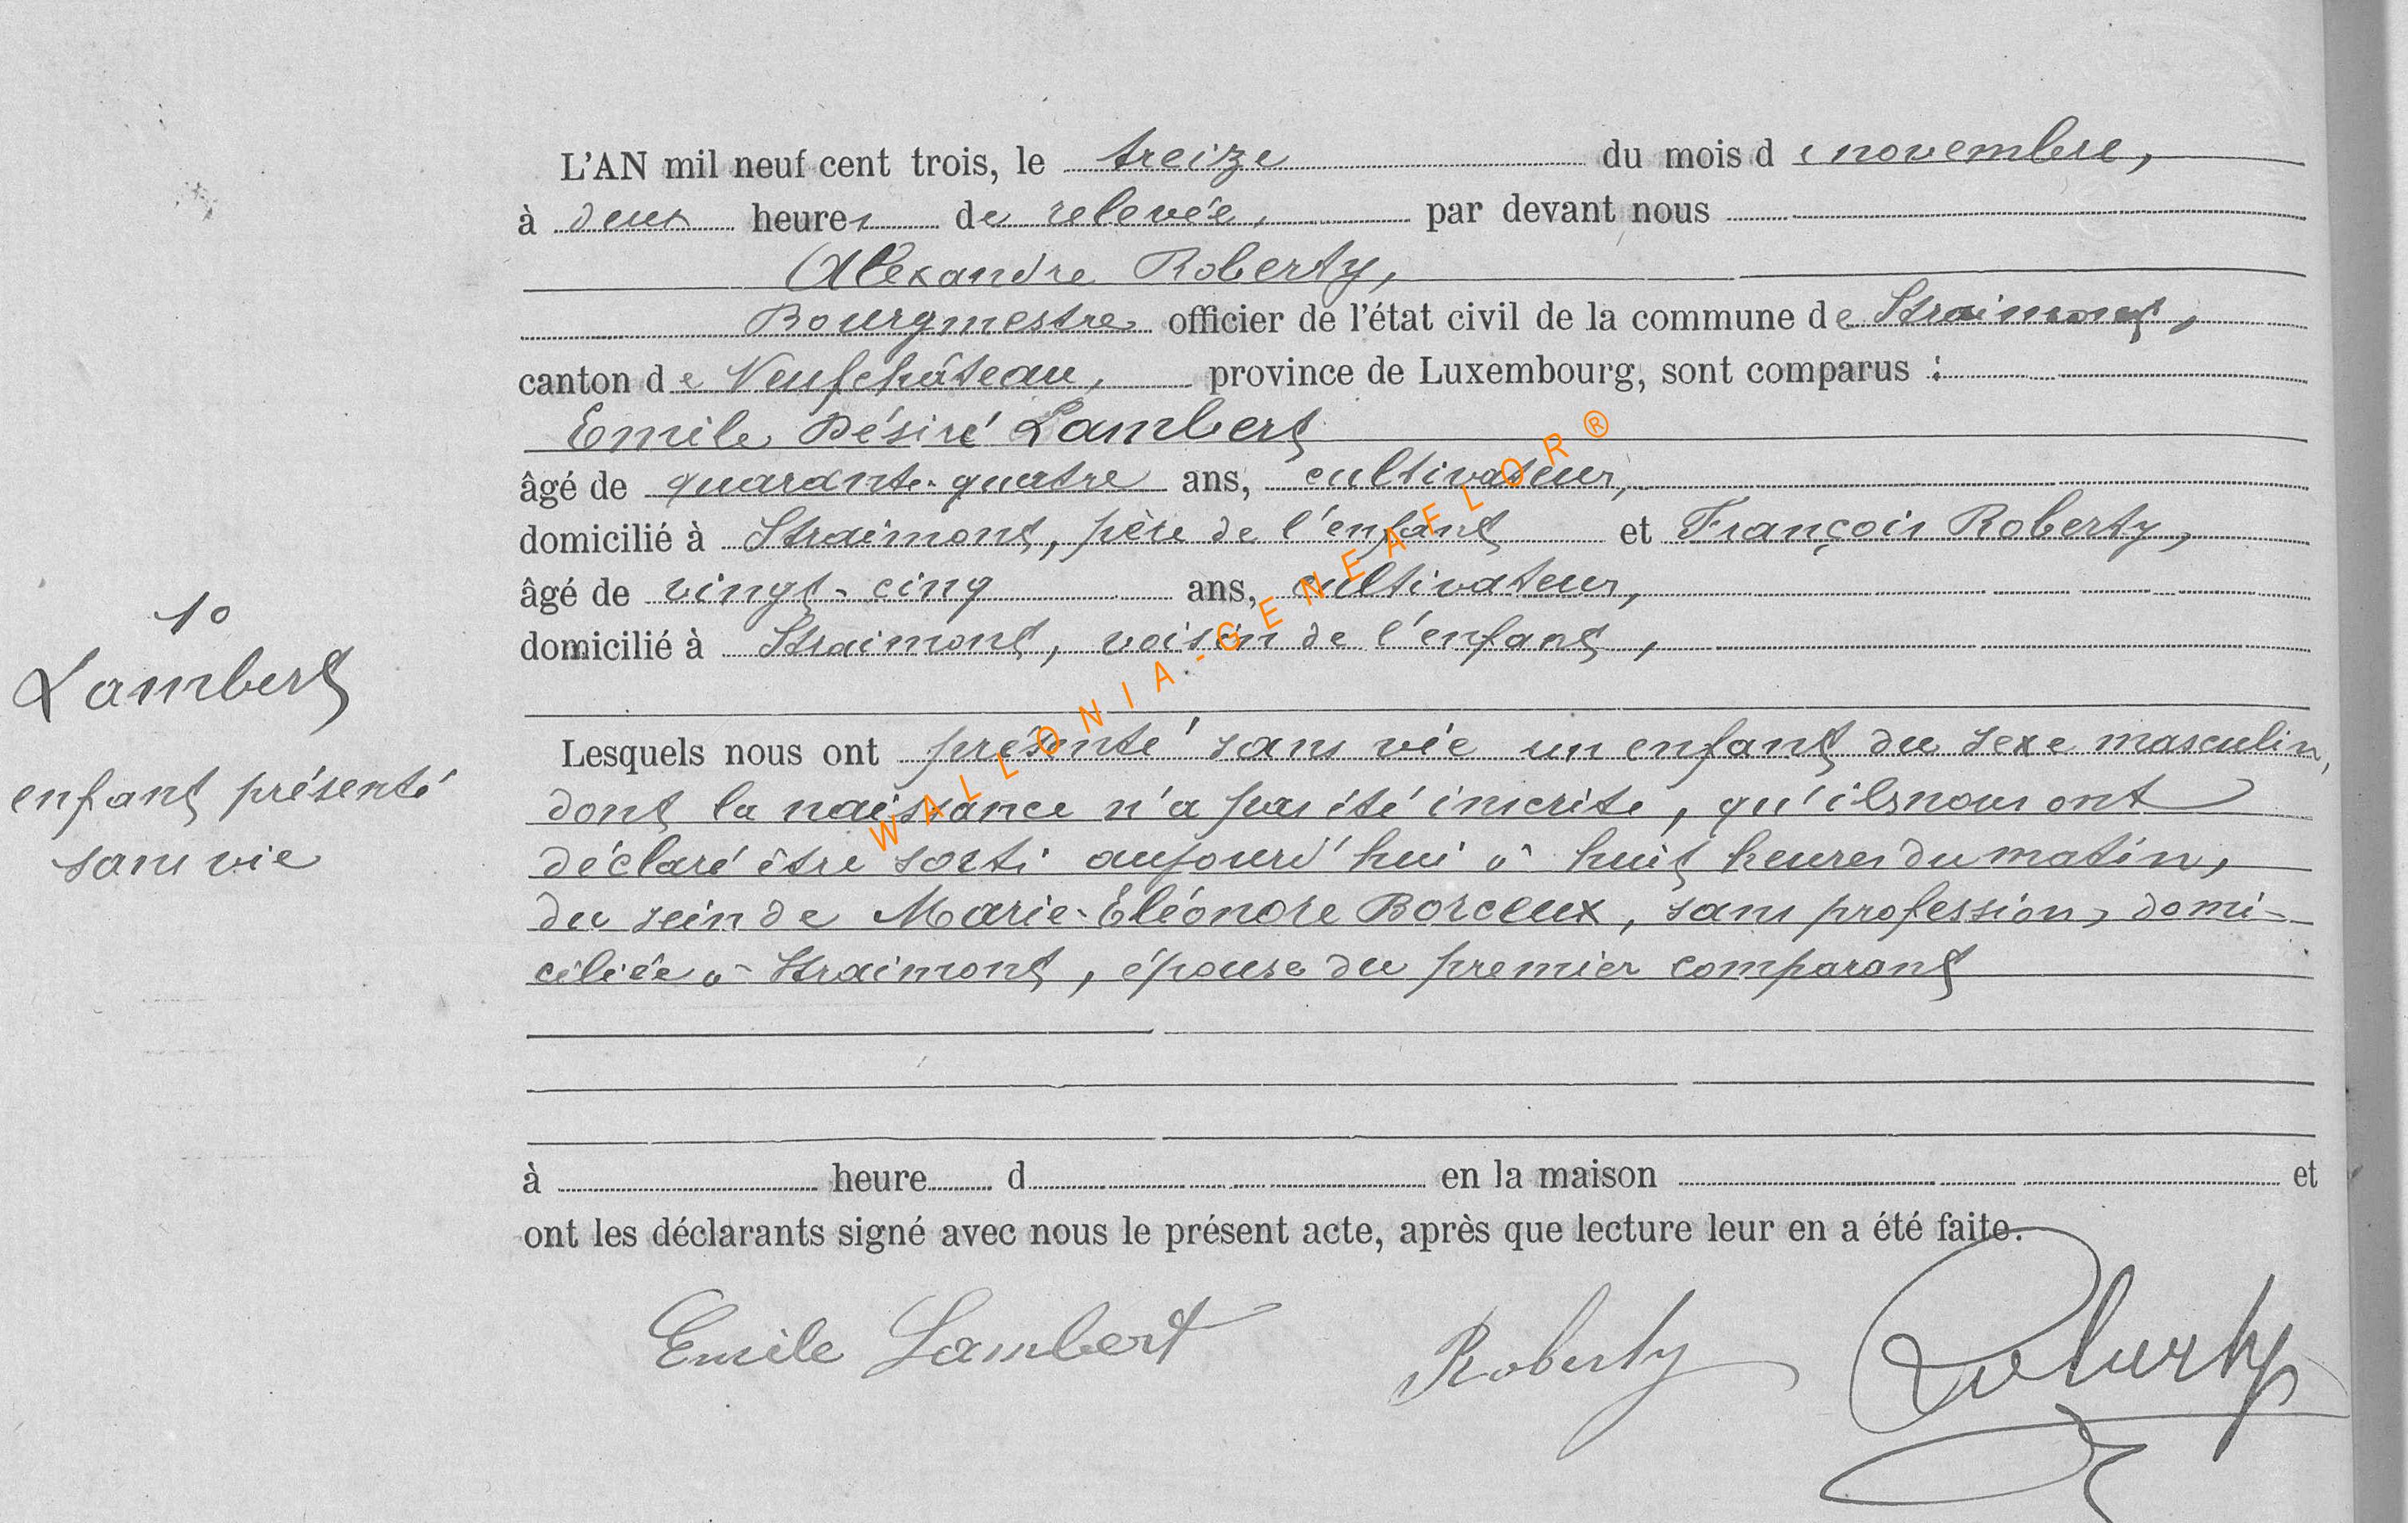 L'AN mil neuf cent trois, le treize du mois de novembre,
à deux heures de relevée, par devant nous
Alexandre Roberty,
Bourgmestre officier de l'état civil de la commune de Straimont,
canton de Neufchâteau, province de Luxembourg, sont comparus :
Emile Désiré Lambert
âgé de quarante-quatre ans, cultivateur,
domicilié à Straimont, père de l'enfant et François Roberty,
âgé de vingt-cinq ans, cultivateur,
domicilié à Straimont, voisin de l'enfant,
10
Lambert
enfant présenté
sans vie
Lesquels nous ont présenté sans vie un enfant du sexe masculin,
dont la naissance n'a pas été inscrite, qu'ils nous ont
déclaré être sorti aujourd'hui à huit heures du matin,
du sein de Marie-Éléonore Borceux, sans profession, domi-
ciliée à Straimont, épouse du premier comparant
à heure d en la maison et
ont les déclarants signé avec nous le présent acte, après que lecture leur en a été faite.
Emile Lambert Roberty Roberty
WALLONIA-GENEAFLOR®